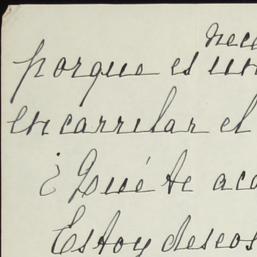 nece
porque es un
encarrilar el
¿Qué te aco
Estoy deseos